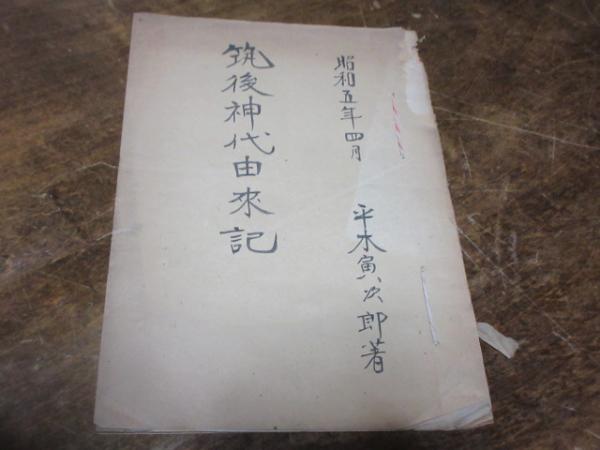 昭和五年四月
平木寅次郎著
筑後神代由來記